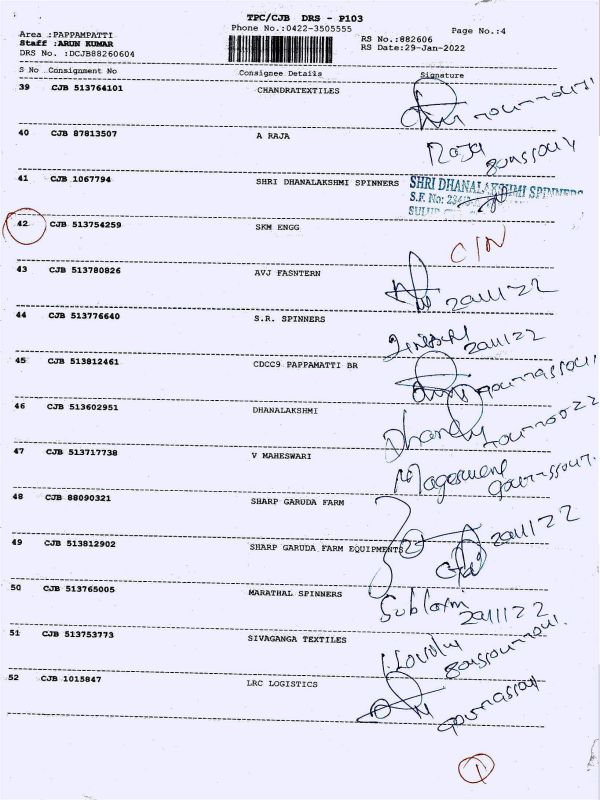 TPC/CJB DRS - P103
Phone No.:0422-3505555
Area :PAPPAMPATTI
Staff :ARUN KUMAR
DRS No. :DCJB88260604
RS No.:882606
RS Date:29-Jan-2022
Page No.:4
S No Consignment No Consignee Details Signature
39 CJB 513764101 CHANDRATEXTILES
40 CJB 87813507 A RAJA
Raja
41 CJB 1067794 SHRI DHANALAKSHMI SPINNERS
SHRI DHANALAKSHMI SPINNERS
S.F. No:
SULUR
42 CJB 513754259 SKM ENGG
C/N
43 CJB 513780826 AVJ FASNTERN
29/1/22
44 CJB 513776640 S.R. SPINNERS
29/1/22
45 CJB 513812461 CDCC9 PAPPAMATTI BR
46 CJB 513602951 DHANALAKSHMI
47 CJB 513717738 V MAHESWARI
48 CJB 88090321 SHARP GARUDA FARM
29/1/22
49 CJB 513812902 SHARP GARUDA FARM EQUIPMENTS
50 CJB 513765005 MARATHAL SPINNERS
29/1/22
51 CJB 513753773 SIVAGANGA TEXTILES
52 CJB 1015847 LRC LOGISTICS
1